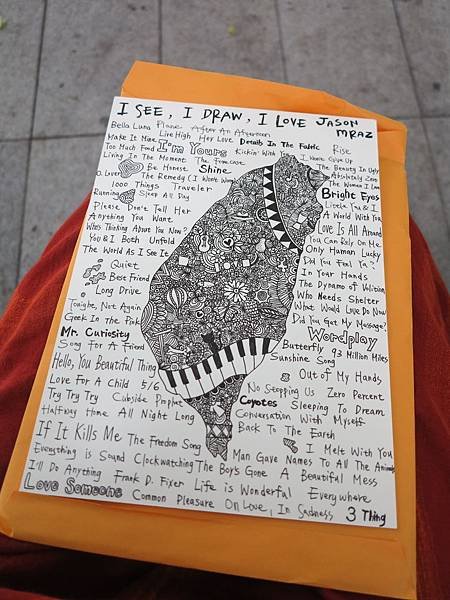 I SEE, I DRAW, I LOVE JASON MRAZ
Bella Luna Plane After An Afternoon
Make It Mine Live High Hey Love Details In The Fabric Rise
Too Much Food I'm Yours Kickin' With I Won't Give Up
Living In The Moment The Forecast The Beauty In Ugly
O. Lover Be Honest Shine Absolutely Zero
The Remedy (I Won't Worry) The Woman I Love
1000 Things Traveler Bright Eyes
Running Sleep All Day Little You & I
Please Don't Tell Her A World With You
Anything You Want Love Is All Around
Who's Thinking About You Now? You Can Rely On Me
You & I Both Unfold Only Human Lucky
The World As I See It Did You Feel Ya?
Quiet In Your Hands
Best Friend The Dynamo of Volition
Long Drive Who Needs Shelter
Tonight, Not Again What Would Love Do Now
Geek In the Pink Did You Get My Message?
Mr. Curiosity Wordplay
Song For A Friend Butterfly 93 Million Miles
Hello, You Beautiful Thing Sunshine Song
Out of My Hands
Love For A Child 5/6 No Stopping Us Zero Percent
Try Try Try Cubside Prophet Coyotes Sleeping To Dream
Halfway Home All Night Long Conversation With Myself
Back To The Earth
If It Kills Me The Freedom Song I Melt With You
Everything is Sound Clockwatching The Boy's Gone Man Gave Names To All The Animals
I'll Do Anything Frank D. Fixer Life is Wonderful A Beautiful Mess
Everywhere
Love Someone Common Pleasure On Love, In Sadness 3 Thing